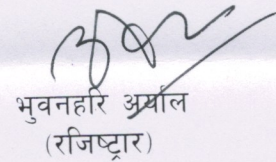 भुवनहरि अर्याल
(रजिष्ट्रार)